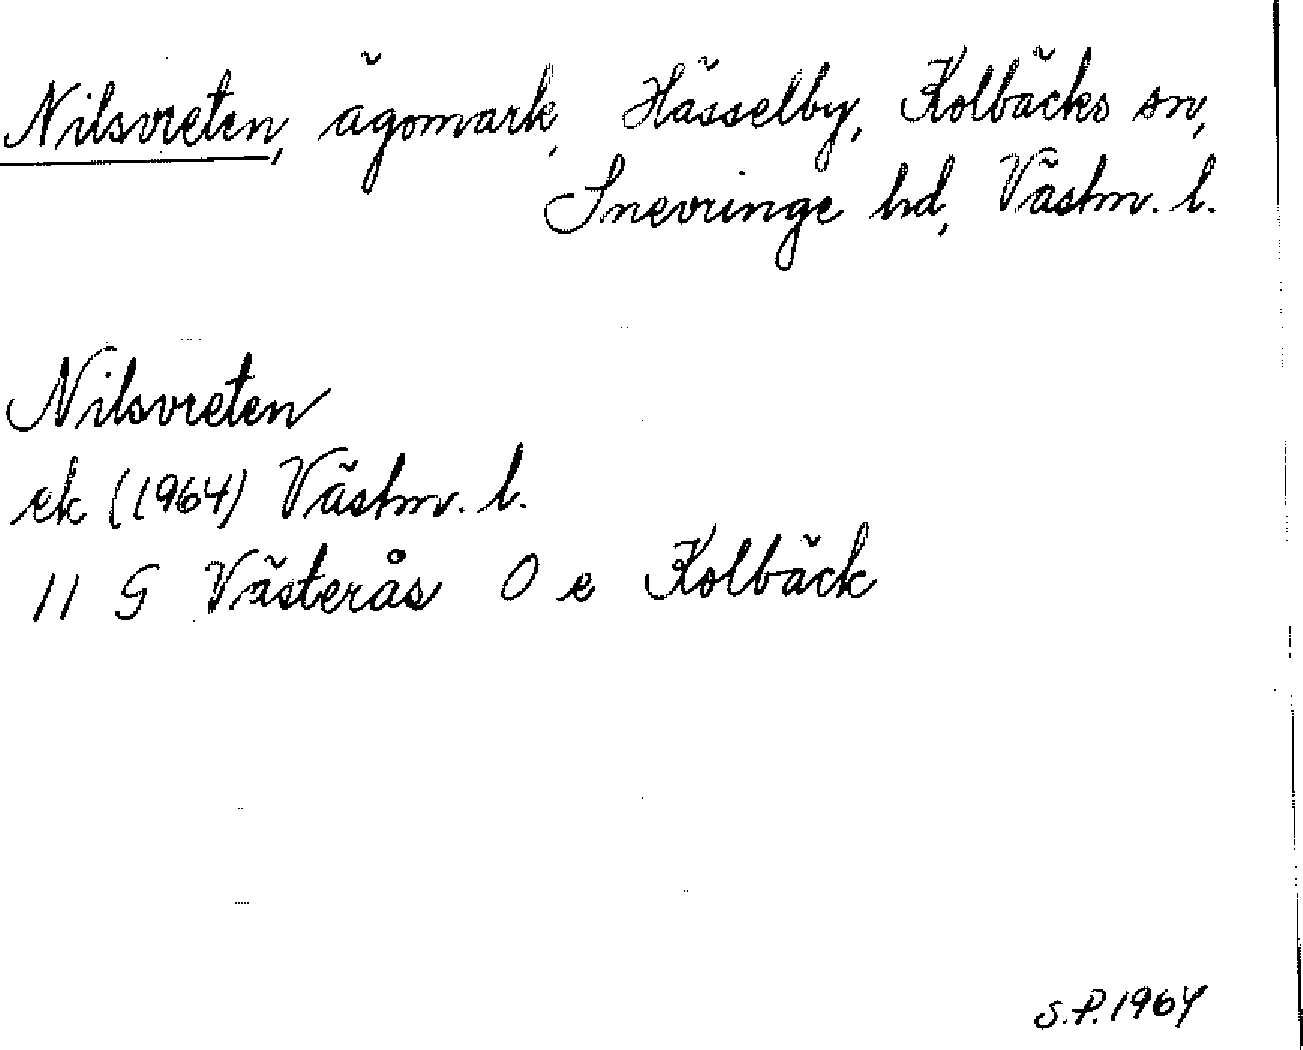 Nilsvreten, ägomark, Hässelby, Kolbäcks sn,
Snevringe hd, Västm. l.
Nilsvreten
ek (1964) Västm. l.
11 G Västerås 0 e Kolbäck
S.P. 1964